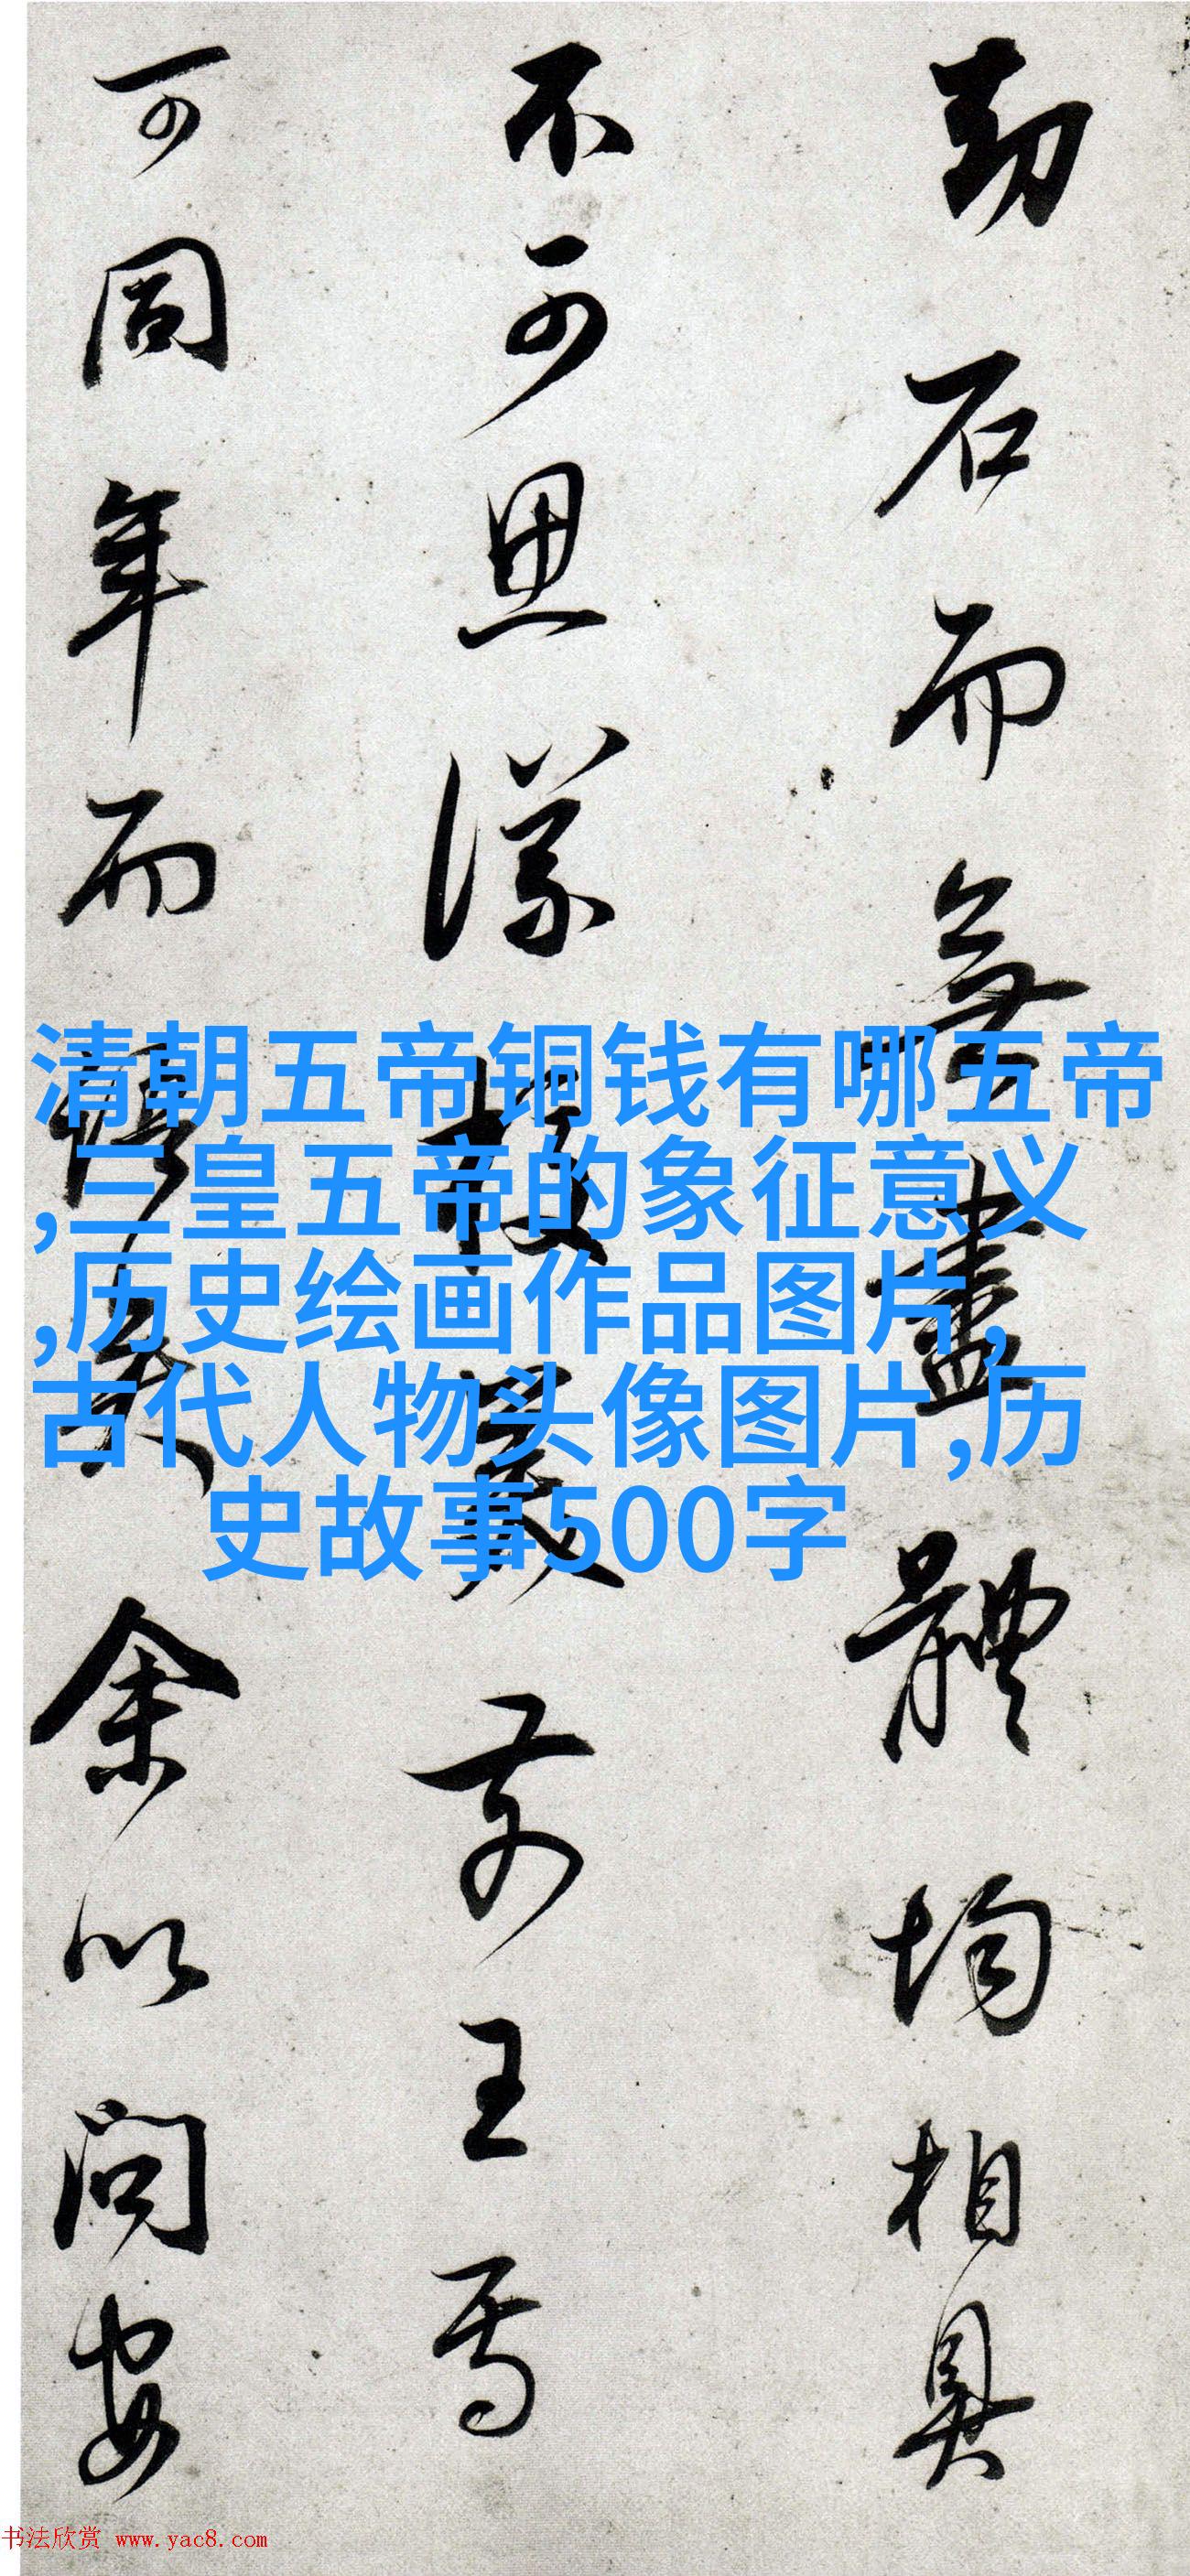 劫石而無盡體均相具
不可思議校量前王焉
可同年而語矣余以問安
清朝五帝铜钱有哪五帝
,三皇五帝的象征意义
,历史绘画作品图片,
古代人物头像图片,历
史故事500字
书法欣赏 www.yac8.com